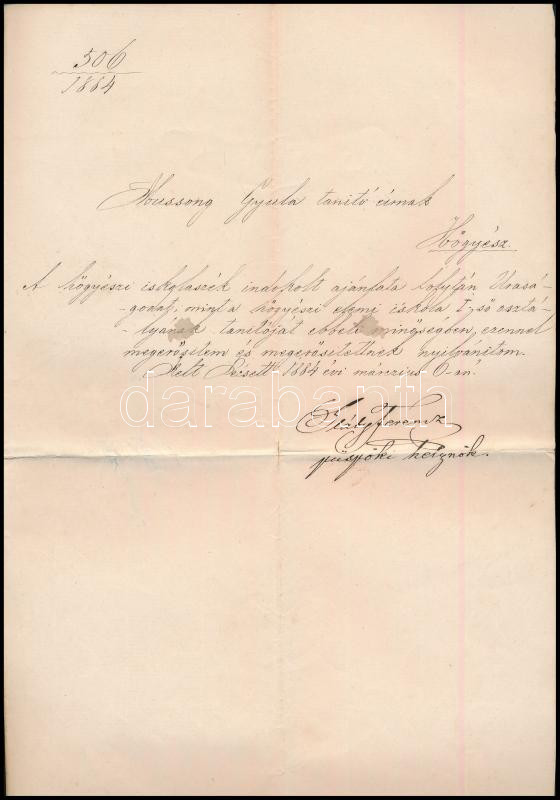 506
1884
Mussong Gyula tanitó úrnak
Hőgyész
A hőgyészi iskolaszék indokolt ajánlata folytán Urasá-
-godat, mint a hőgyészi elemi iskola I-ső osztá-
-lyának tanitóját ebbeli minőségben, ezennel
megerősitem és megerősitettnek nyilvánitom.
Kelt Pécsett 1884 évi márczius 6-án.
Ferencz
püspöki helynök.
darabanth